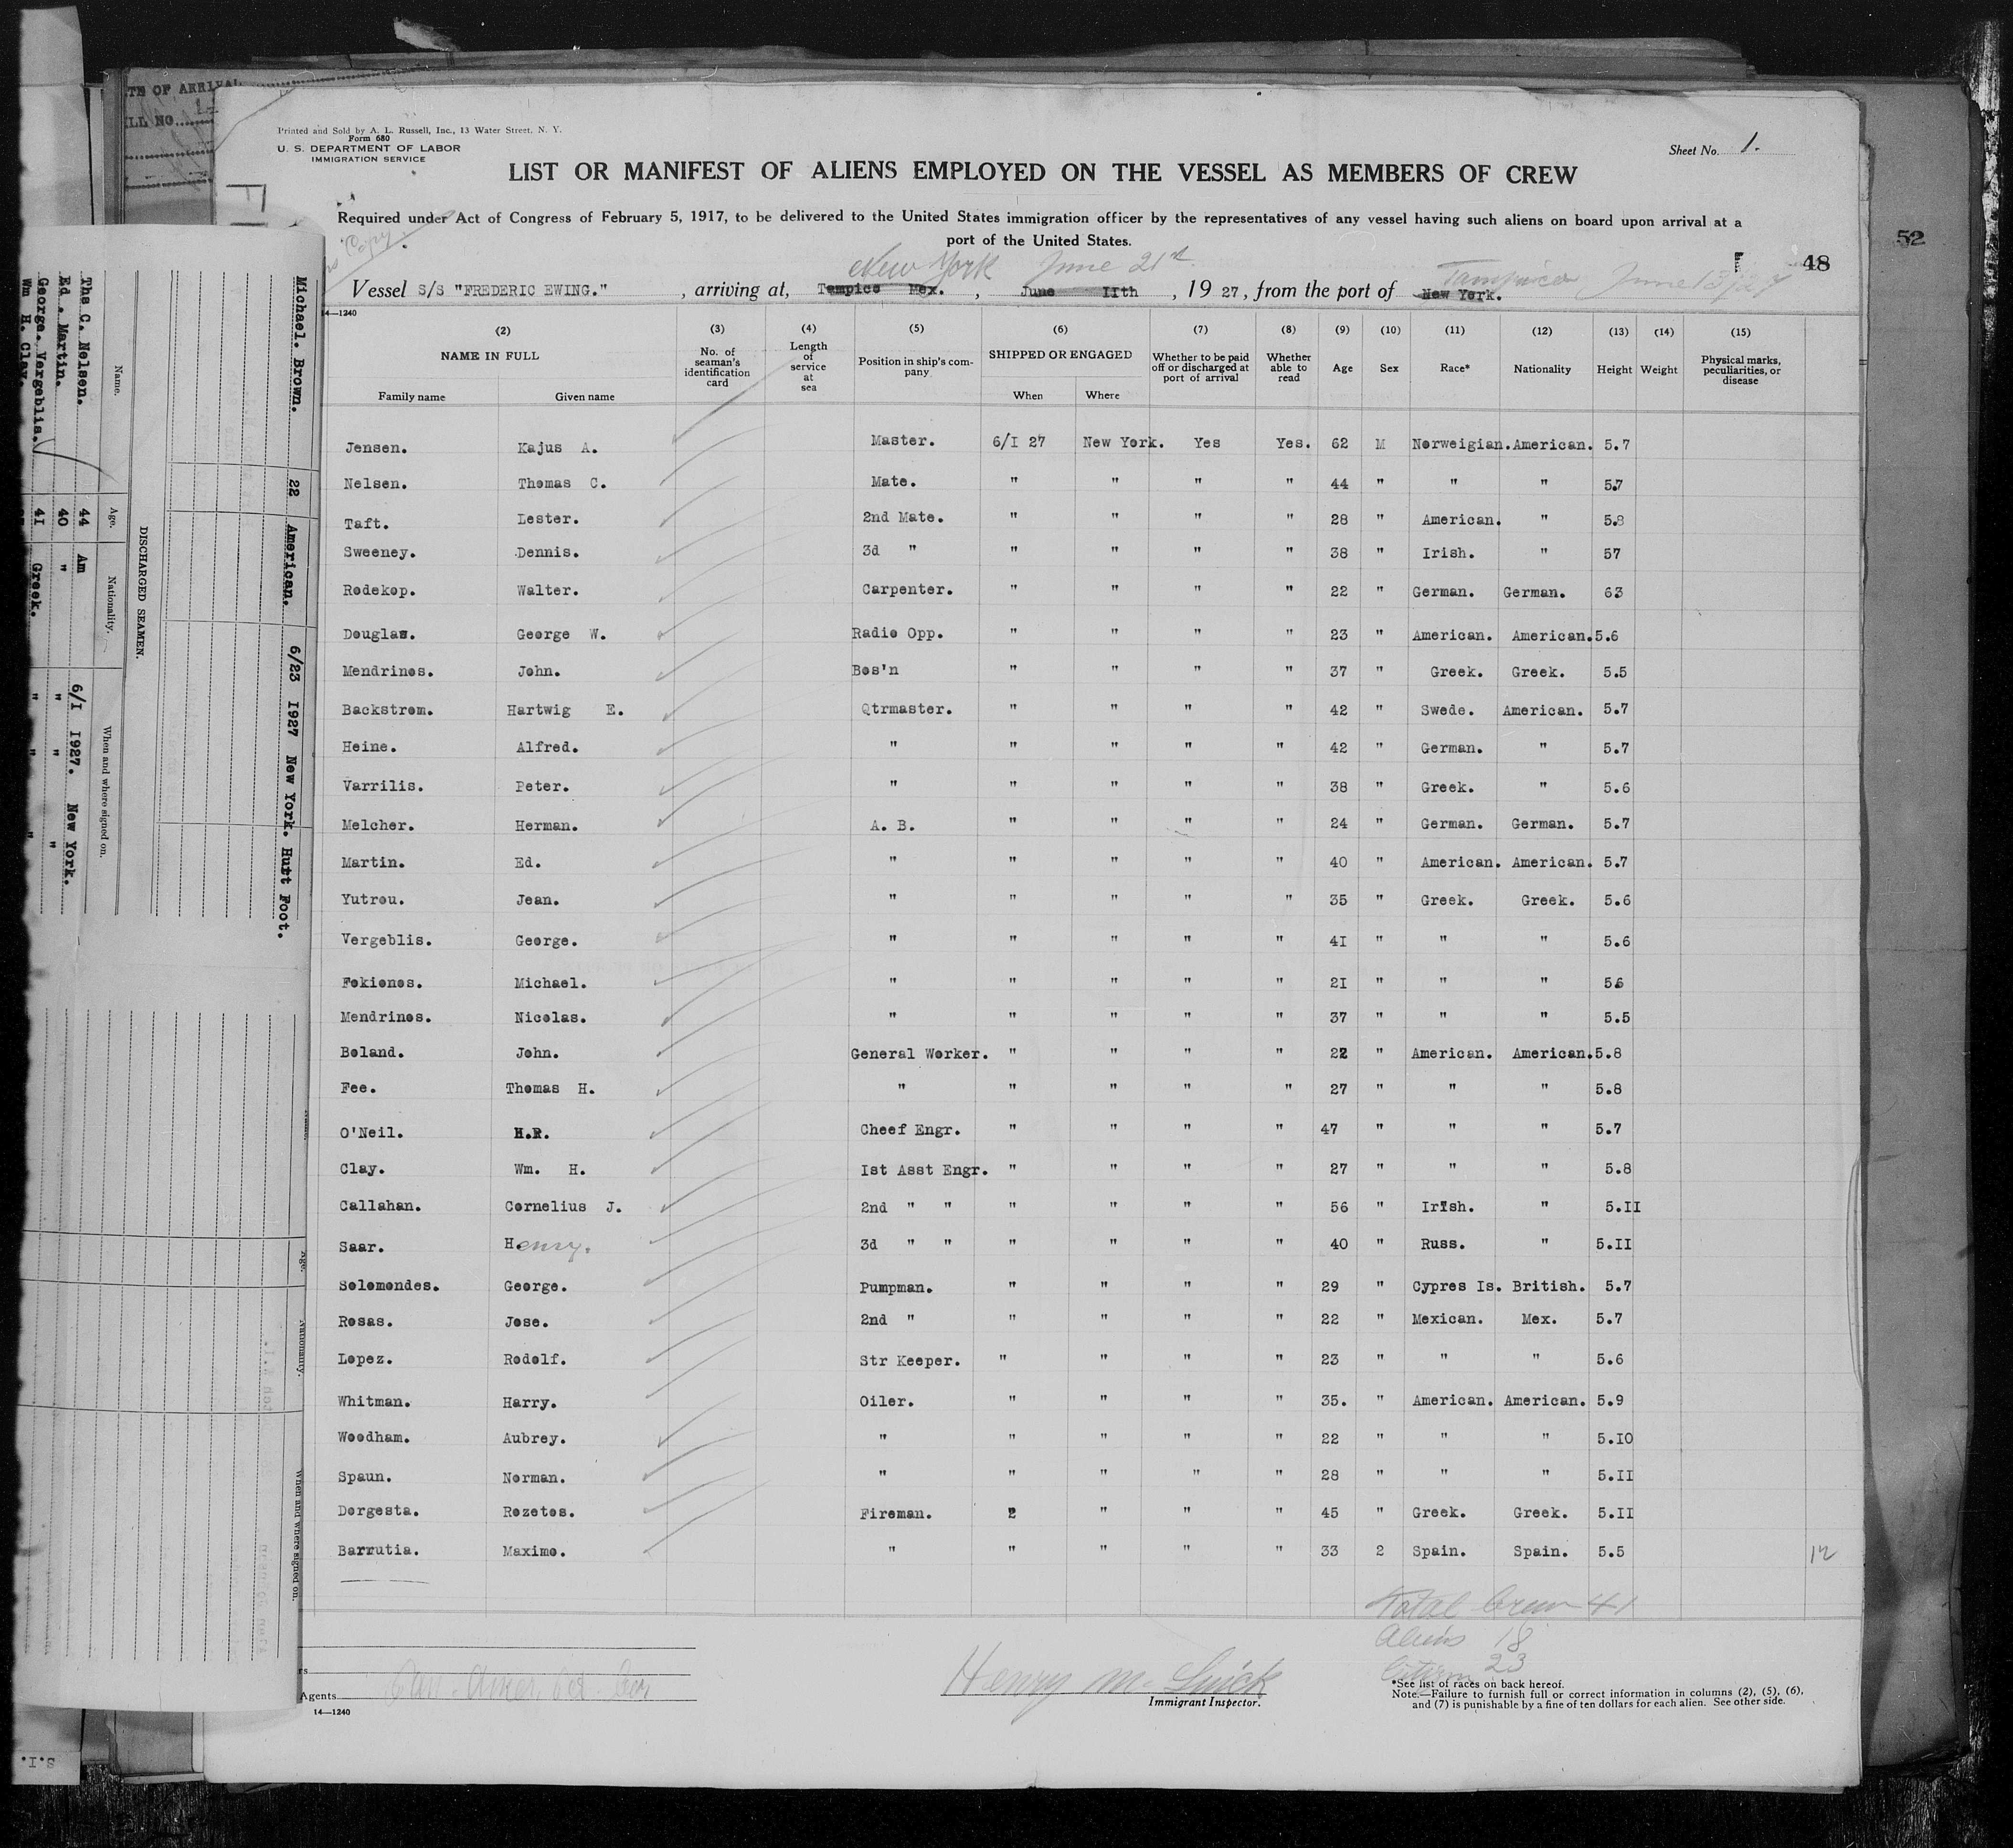 TE OF ARRIVAL
ILL NO
Printed and Sold by A. L. Russell, Inc., 13 Water Street, N. Y.
Form 680
U. S. DEPARTMENT OF LABOR
IMMIGRATION SERVICE
Sheet No. 1.
LIST OR MANIFEST OF ALIENS EMPLOYED ON THE VESSEL AS MEMBERS OF CREW
Required under Act of Congress of February 5, 1917, to be delivered to the United States immigration officer by the representatives of any vessel having such aliens on board upon arrival at a
port of the United States.
Copy
52
48
New York June 21st Tampico June 13/27
Vessel S/S "FREDERIC EWING." , arriving at, Tempico Mex. , June IIth , 19 27, from the port of New York.
14—1240
(2) (3) (4) (5) (6) (7) (8) (9) (10) (11) (12) (13) (14) (15)
NAME IN FULL No. of seaman's identification card Length of service at sea Position in ship's company SHIPPED OR ENGAGED Whether to be paid off or discharged at port of arrival Whether able to read Age Sex Race* Nationality Height Weight Physical marks, peculiarities, or disease
Family name Given name When Where
Jensen. Kajus A. Master. 6/I 27 New York. Yes Yes. 62 M Norweigian. American. 5.7
Nelsen. Thomas C. Mate. " " " " 44 " " " 5.7
Taft. Lester. 2nd Mate. " " " " 28 " American. " 5.8
Sweeney. Dennis. 3d " " " " " 38 " Irish. " 57
Rodekop. Walter. Carpenter. " " " " 22 " German. German. 63
Douglas. George W. Radio Opp. " " " " 23 " American. American. 5.6
Mendrinos. John. Bos'n " " " " 37 " Greek. Greek. 5.5
Backstrom. Hartwig E. Qtrmaster. " " " " 42 " Swede. American. 5.7
Heine. Alfred. " " " " " 42 " German. " 5.7
Varrilis. Peter. " " " " " 38 " Greek. " 5.6
Melcher. Herman. A. B. " " " " 24 " German. German. 5.7
Martin. Ed. " " " " " 40 " American. American. 5.7
Yutrou. Jean. " " " " " 35 " Greek. Greek. 5.6
Vergeblis. George. " " " " " 4I " " " 5.6
Fokionos. Michael. " " " " " 2I " " " 5.6
Mendrinos. Nicolas. " " " " " 37 " " " 5.5
Boland. John. General Worker. " " " " 22 " American. American. 5.8
Fee. Thomas H. " " " " " 27 " " " 5.8
O'Neil. H.R. Cheef Engr. " " " " 47 " " " 5.7
Clay. Wm. H. Ist Asst Engr. " " " " 27 " " " 5.8
Callahan. Cornelius J. 2nd " " " " " " 56 " Irish. " 5.II
Saar. Henry. 3d " " " " " " 40 " Russ. " 5.II
Solomondes. George. Pumpman. " " " " 29 " Cypres Is. British. 5.7
Rosas. Jose. 2nd " " " " " 22 " Mexican. Mex. 5.7
Lopez. Rodolf. Str Keeper. " " " " 23 " " " 5.6
Whitman. Harry. Oiler. " " " " 35. " American. American. 5.9
Woodham. Aubrey. " " " " " 22 " " " 5.IO
Spaun. Norman. " " " " " 28 " " " 5.II
Dorgesta. Rozetos. Fireman. 2 " " " 45 " Greek. Greek. 5.II
Barrutia. Maximo. " " " " " 33 2 Spain. Spain. 5.5 12
Total Crew 41
Aliens 18
Citizens 23
Agents
Henry M. Quick
Immigrant Inspector.
*See list of races on back hereof.
Note.—Failure to furnish full or correct information in columns (2), (5), (6),
and (7) is punishable by a fine of ten dollars for each alien. See other side.
14—1240
Michael. Brown. 22 American. 6/23 1927 New York. Hurt Foot.
DISCHARGED SEAMEN.
Name. Age. Nationality. When and where signed on.
Ths C. Nelsen. 44 Am 6/I 1927. New York.
Ed. Martin. 40 " " "
George. Vergeblis. 4I Greek. " "
Wm H. Clay. "
Age. Nationality. When and where signed on.
S.I.